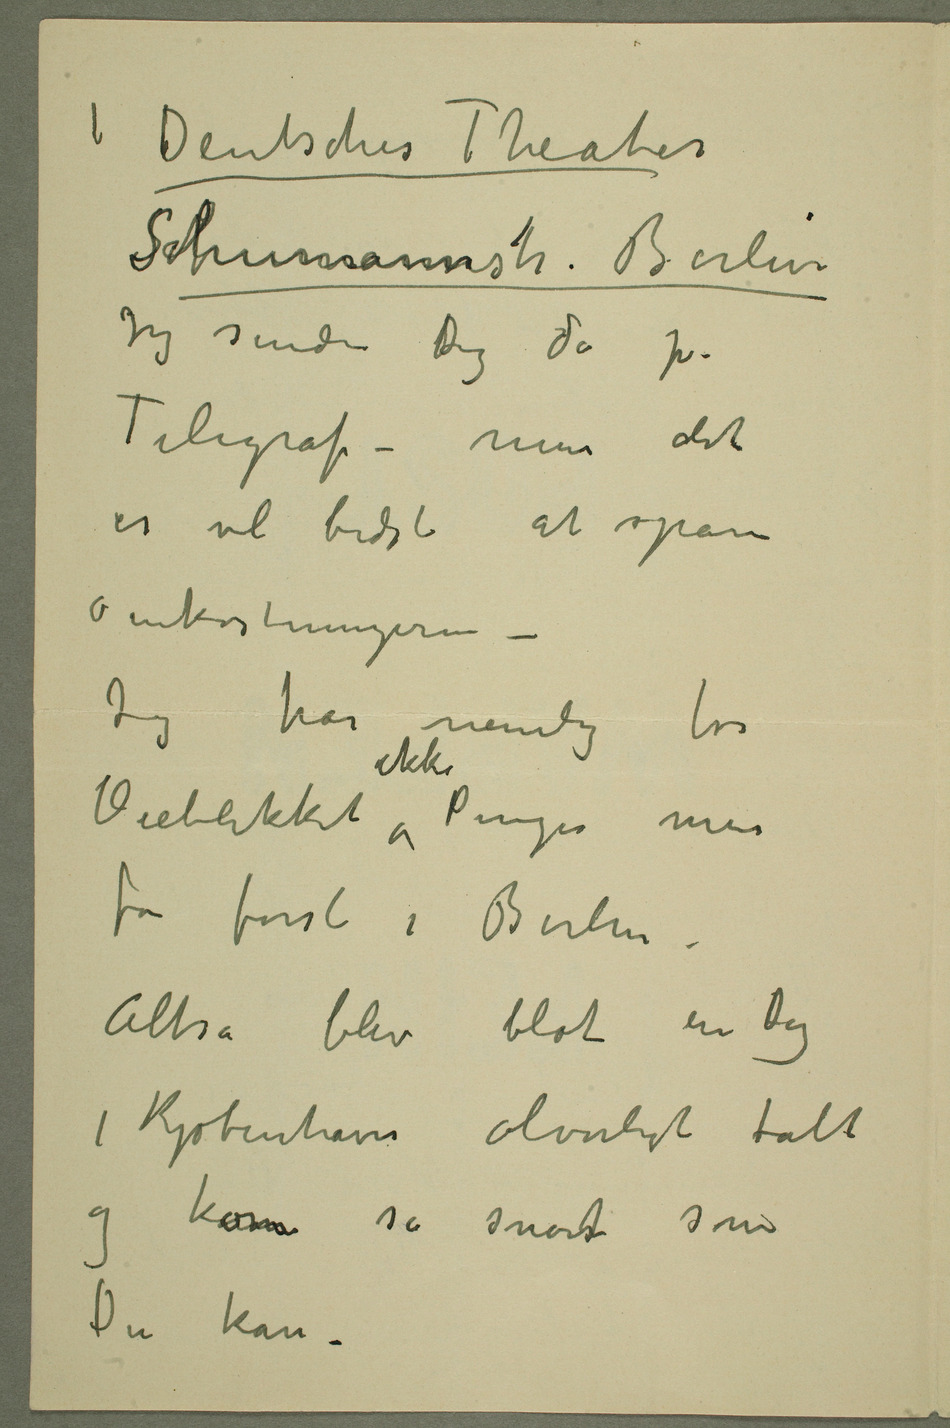 I Deutsches Theater
Schumannstr. Berlin
Jeg sender Dig da pr.
Telegraf – men det
er vel bedst at spare
omkostningerne –
Jeg har nemlig for
Øieblikket ikke Penger men
får først i Berlin.
Altså blev blot en Dag
i Kjøbenhavn alvorligt talt
og kom så snart som
Du kan –